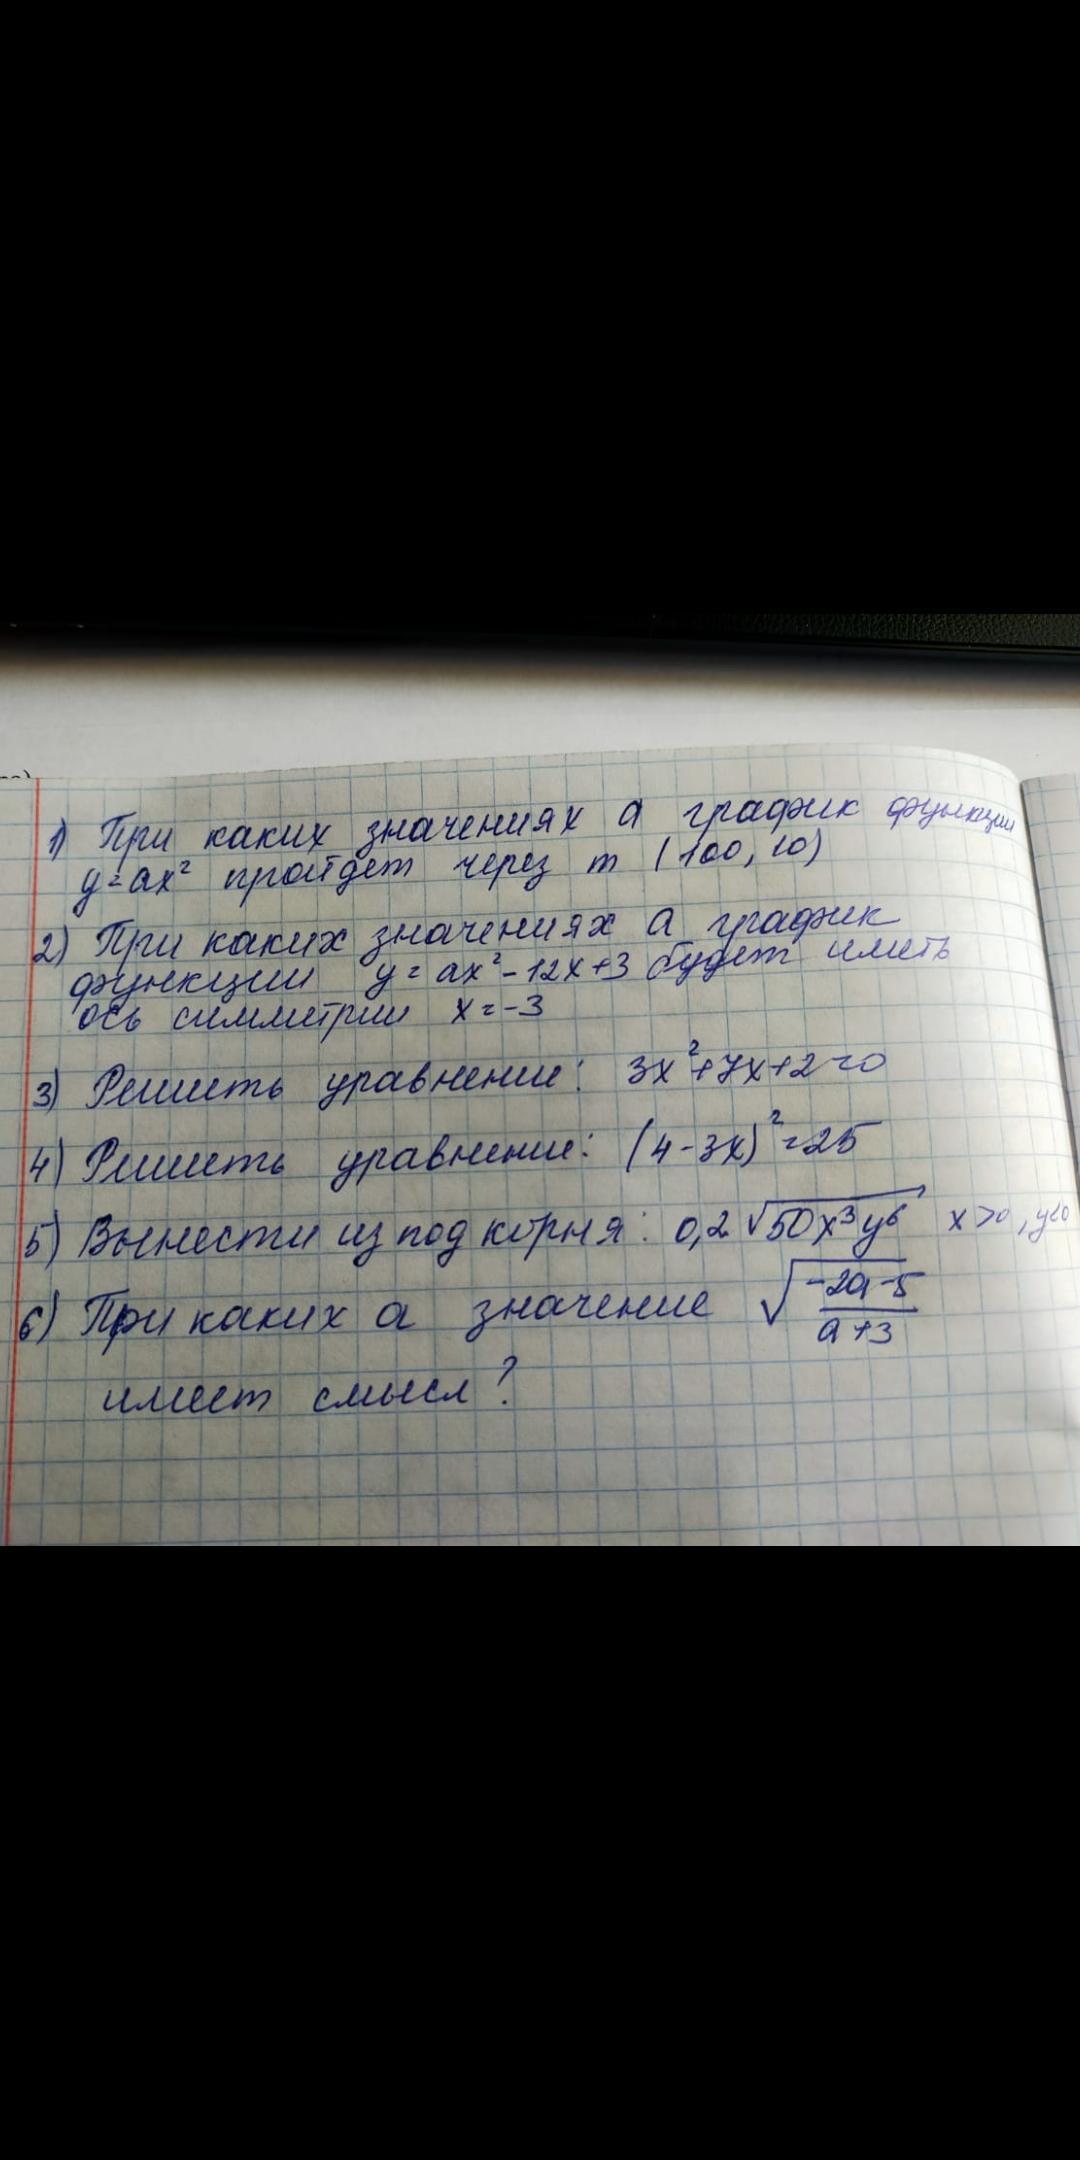 1) При каких значениях а график функции
y=ax² пройдет через т (100, 10)
2) При каких значениях а график
функции y=ax²-12x+3 будет иметь
ось симметрии x=-3
3) Решить уравнение: 3x²+7x+2=0
4) Решить уравнение: (4-3x)²=25
5) Вынести из под корня: 0,2√50x³y⁶ x>0, y<0
6) При каких а значение √(-2a-5)/(a+3)
имеет смысл?